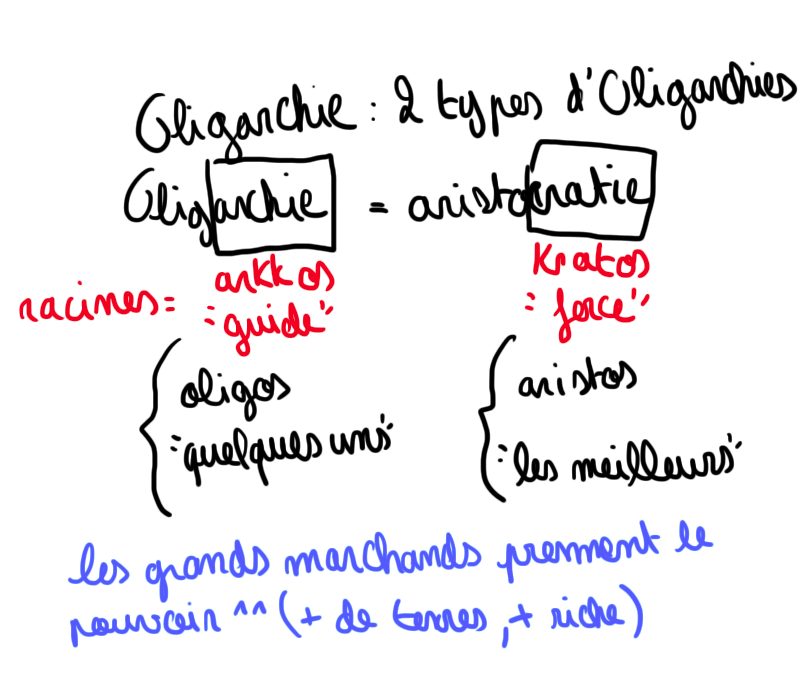 Oligarchie : 2 types d'Oligarchies
Oligarchie = aristocratie
arkkos Kratos
racines= "guide" "force"
oligos aristos
"quelques uns" "les meilleurs"
les grands marchands prennent le
pouvoir ^^ (+ de terres, + riche)